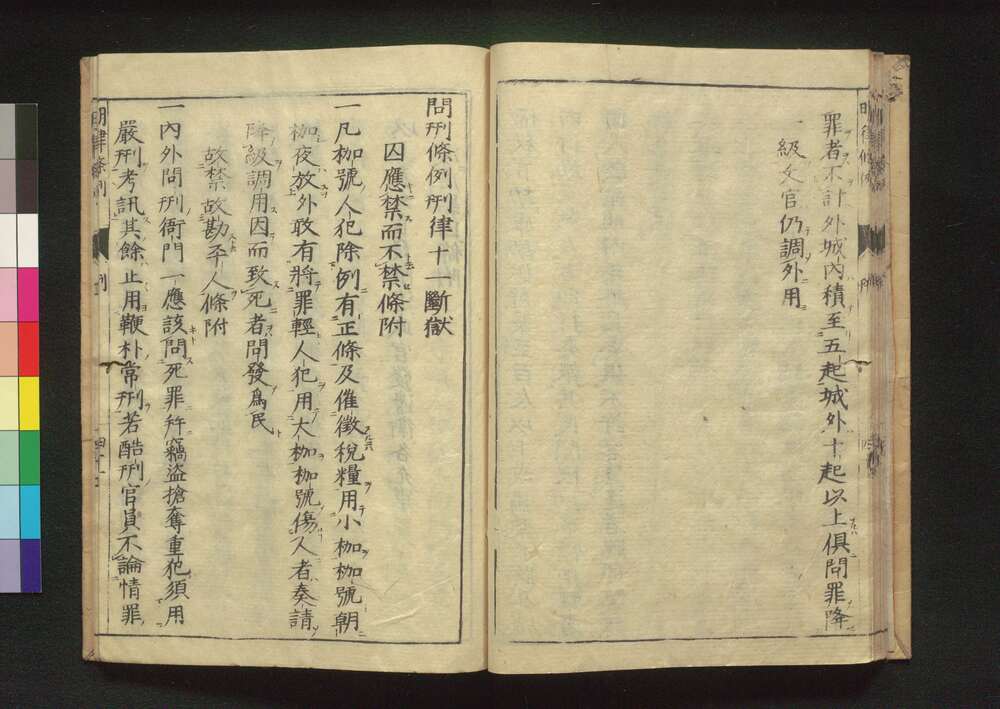 罪者不計外城內積至五起城外十起以上俱問罪降
一級文官仍調外用
問刑條例刑律十一斷獄
囚應禁而不禁條附
一凡枷號人犯除例有正條及催徵稅糧用小枷枷號朝
枷夜放外敢有將罪輕人犯用大枷枷號傷人者奏請
降級調用因而致死者問發爲民
故禁故勘平人條附
一內外問刑衙門一應該問死罪幷竊盜搶奪重犯須用
嚴刑考訊其餘止用鞭朴常刑若酷刑官員不論情罪
明律條例